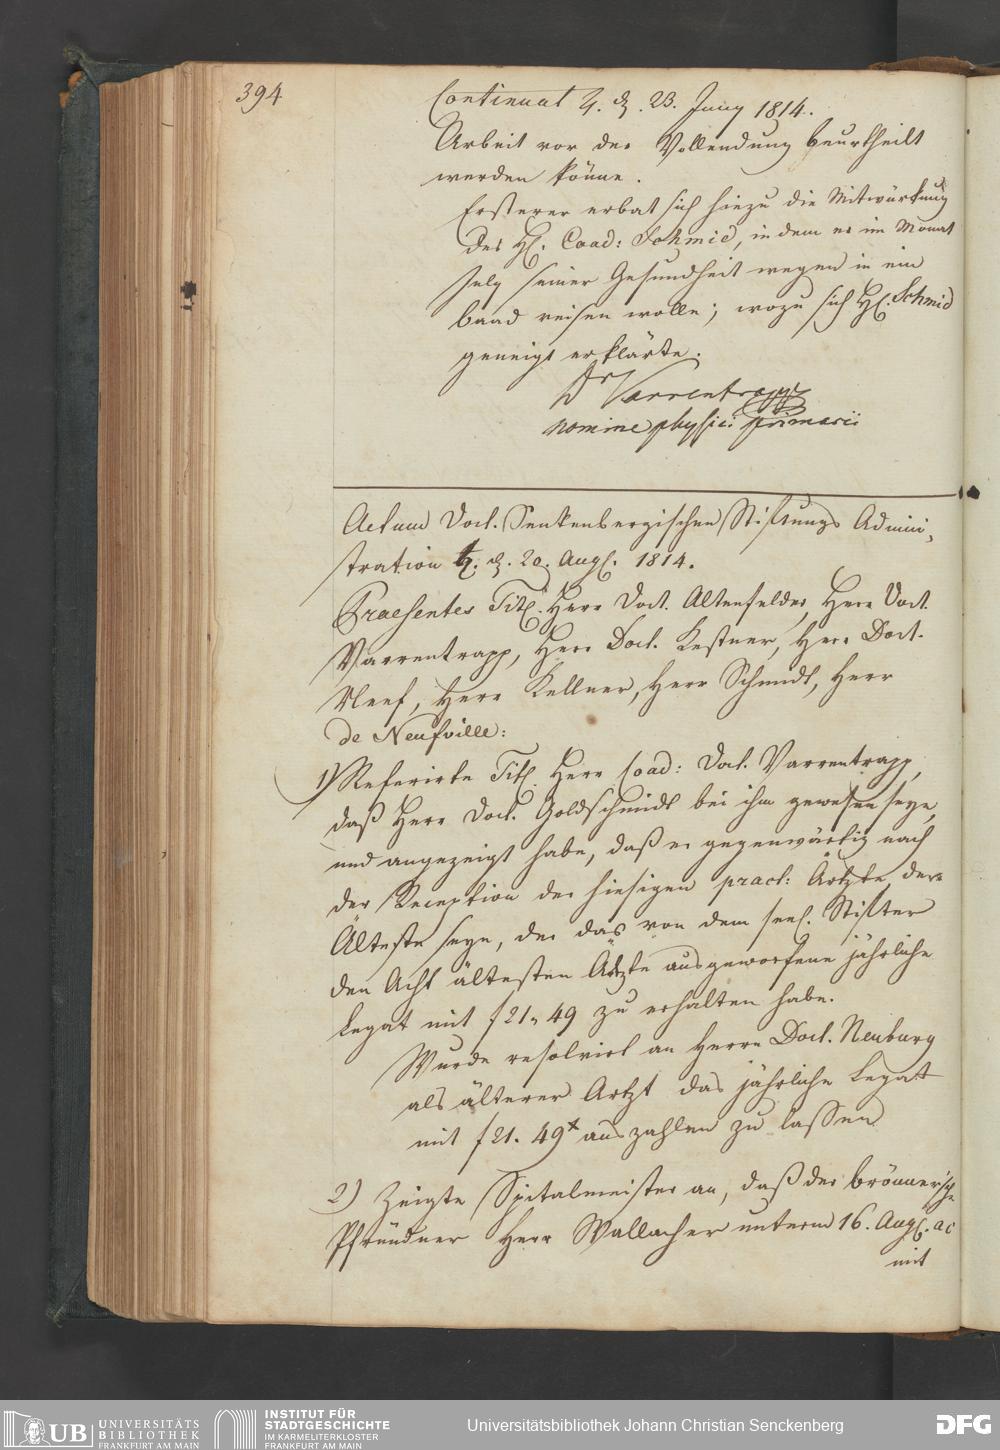 394
Continuat ♃. d. 23. Juny 1814.
Arbeit vor der Vollendung beurtheilt
werden könne.
Ersterer erbat sich hiezu die Mitwürkung
des H. Coad: Schmid, in dem er im Monat
July seiner Gesundheit wegen in ein
baad reisen wolle; wozu sich H. Schmid
geneigt erklärte.
Dr Varrentrapp
nomine physici primarii
Actum Doct. Senkenbergischen Stiftungs Admini,
stration ♄. d. 20. Aug. 1814.
Praesentes Tit. Herr Doct. Altenfelder, Herr Doct.
Varrentrapp, Herr Doct. Kestner, Herr Doct.
Neef, Herr Kellner, Herr Schmidt, Herr
de Neufville:
1) Referirte Tit. Herr Coad: Doct. Varrentrapp,
daß Herr Doct. Goldschmidt bei ihm gewesen seye,
und angezeigt habe, daß er gegenwärtig nach
der Reception der hiesigen pract: Ärtzte der
Älteste seye, der das von dem seel. Stifter
den Acht ältesten Ärtzte ausgeworfene jährliche
Legat mit f 21. 49 zu erhalten habe.
Wurde resolvirt an Herrn Doct. Neuburg
als älterer Artzt das jährliche Legat
mit f 21. 49x auszahlen zu lassen
2) Zeigte Spitalmeister an, daß der brönnersche
Pfründner Herr Wallacher unterm 16. Aug. ac
mit
UB UNIVERSITÄTS
BIBLIOTHEK
FRANKFURT AM MAIN
INSTITUT FÜR
STADTGESCHICHTE
IM KARMELITERKLOSTER
FRANKFURT AM MAIN
Universitätsbibliothek Johann Christian Senckenberg
DFG